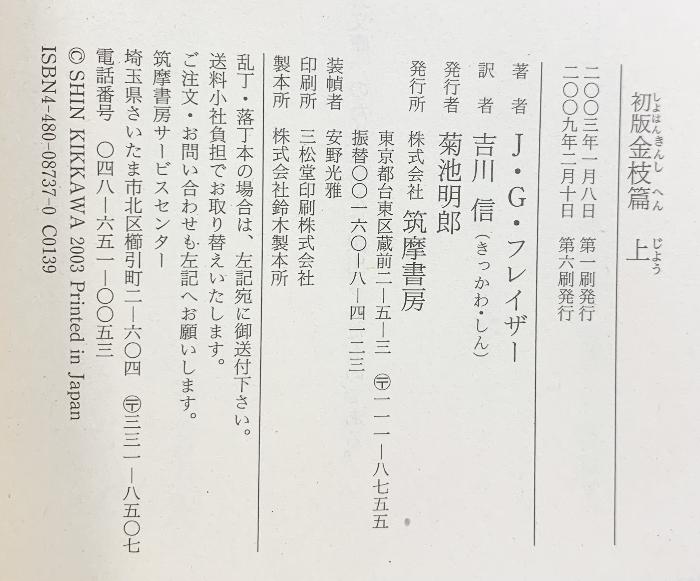 初版金枝篇 上
しょはんきんし へん じょう
二〇〇三年一月八日 第一刷発行
二〇〇九年二月十日 第六刷発行
著者 J・G・フレイザー
訳者 吉川信(きっかわ・しん)
発行者 菊池明郎
発行所 株式会社 筑摩書房
東京都台東区蔵前二―五―三 〒一一一―八七五五
振替〇〇一六〇―八―四一二三
装幀者 安野光雅
印刷所 三松堂印刷株式会社
製本所 株式会社鈴木製本所
乱丁・落丁本の場合は、左記宛に御送付下さい。
送料小社負担でお取り替えいたします。
ご注文・お問い合わせも左記へお願いします。
筑摩書房サービスセンター
埼玉県さいたま市北区櫛引町二―六〇四 〒三三一―八五〇七
電話番号 〇四八―六五一―〇〇五三
© SHIN KIKKAWA 2003 Printed in Japan
ISBN4-480-08737-0 C0139